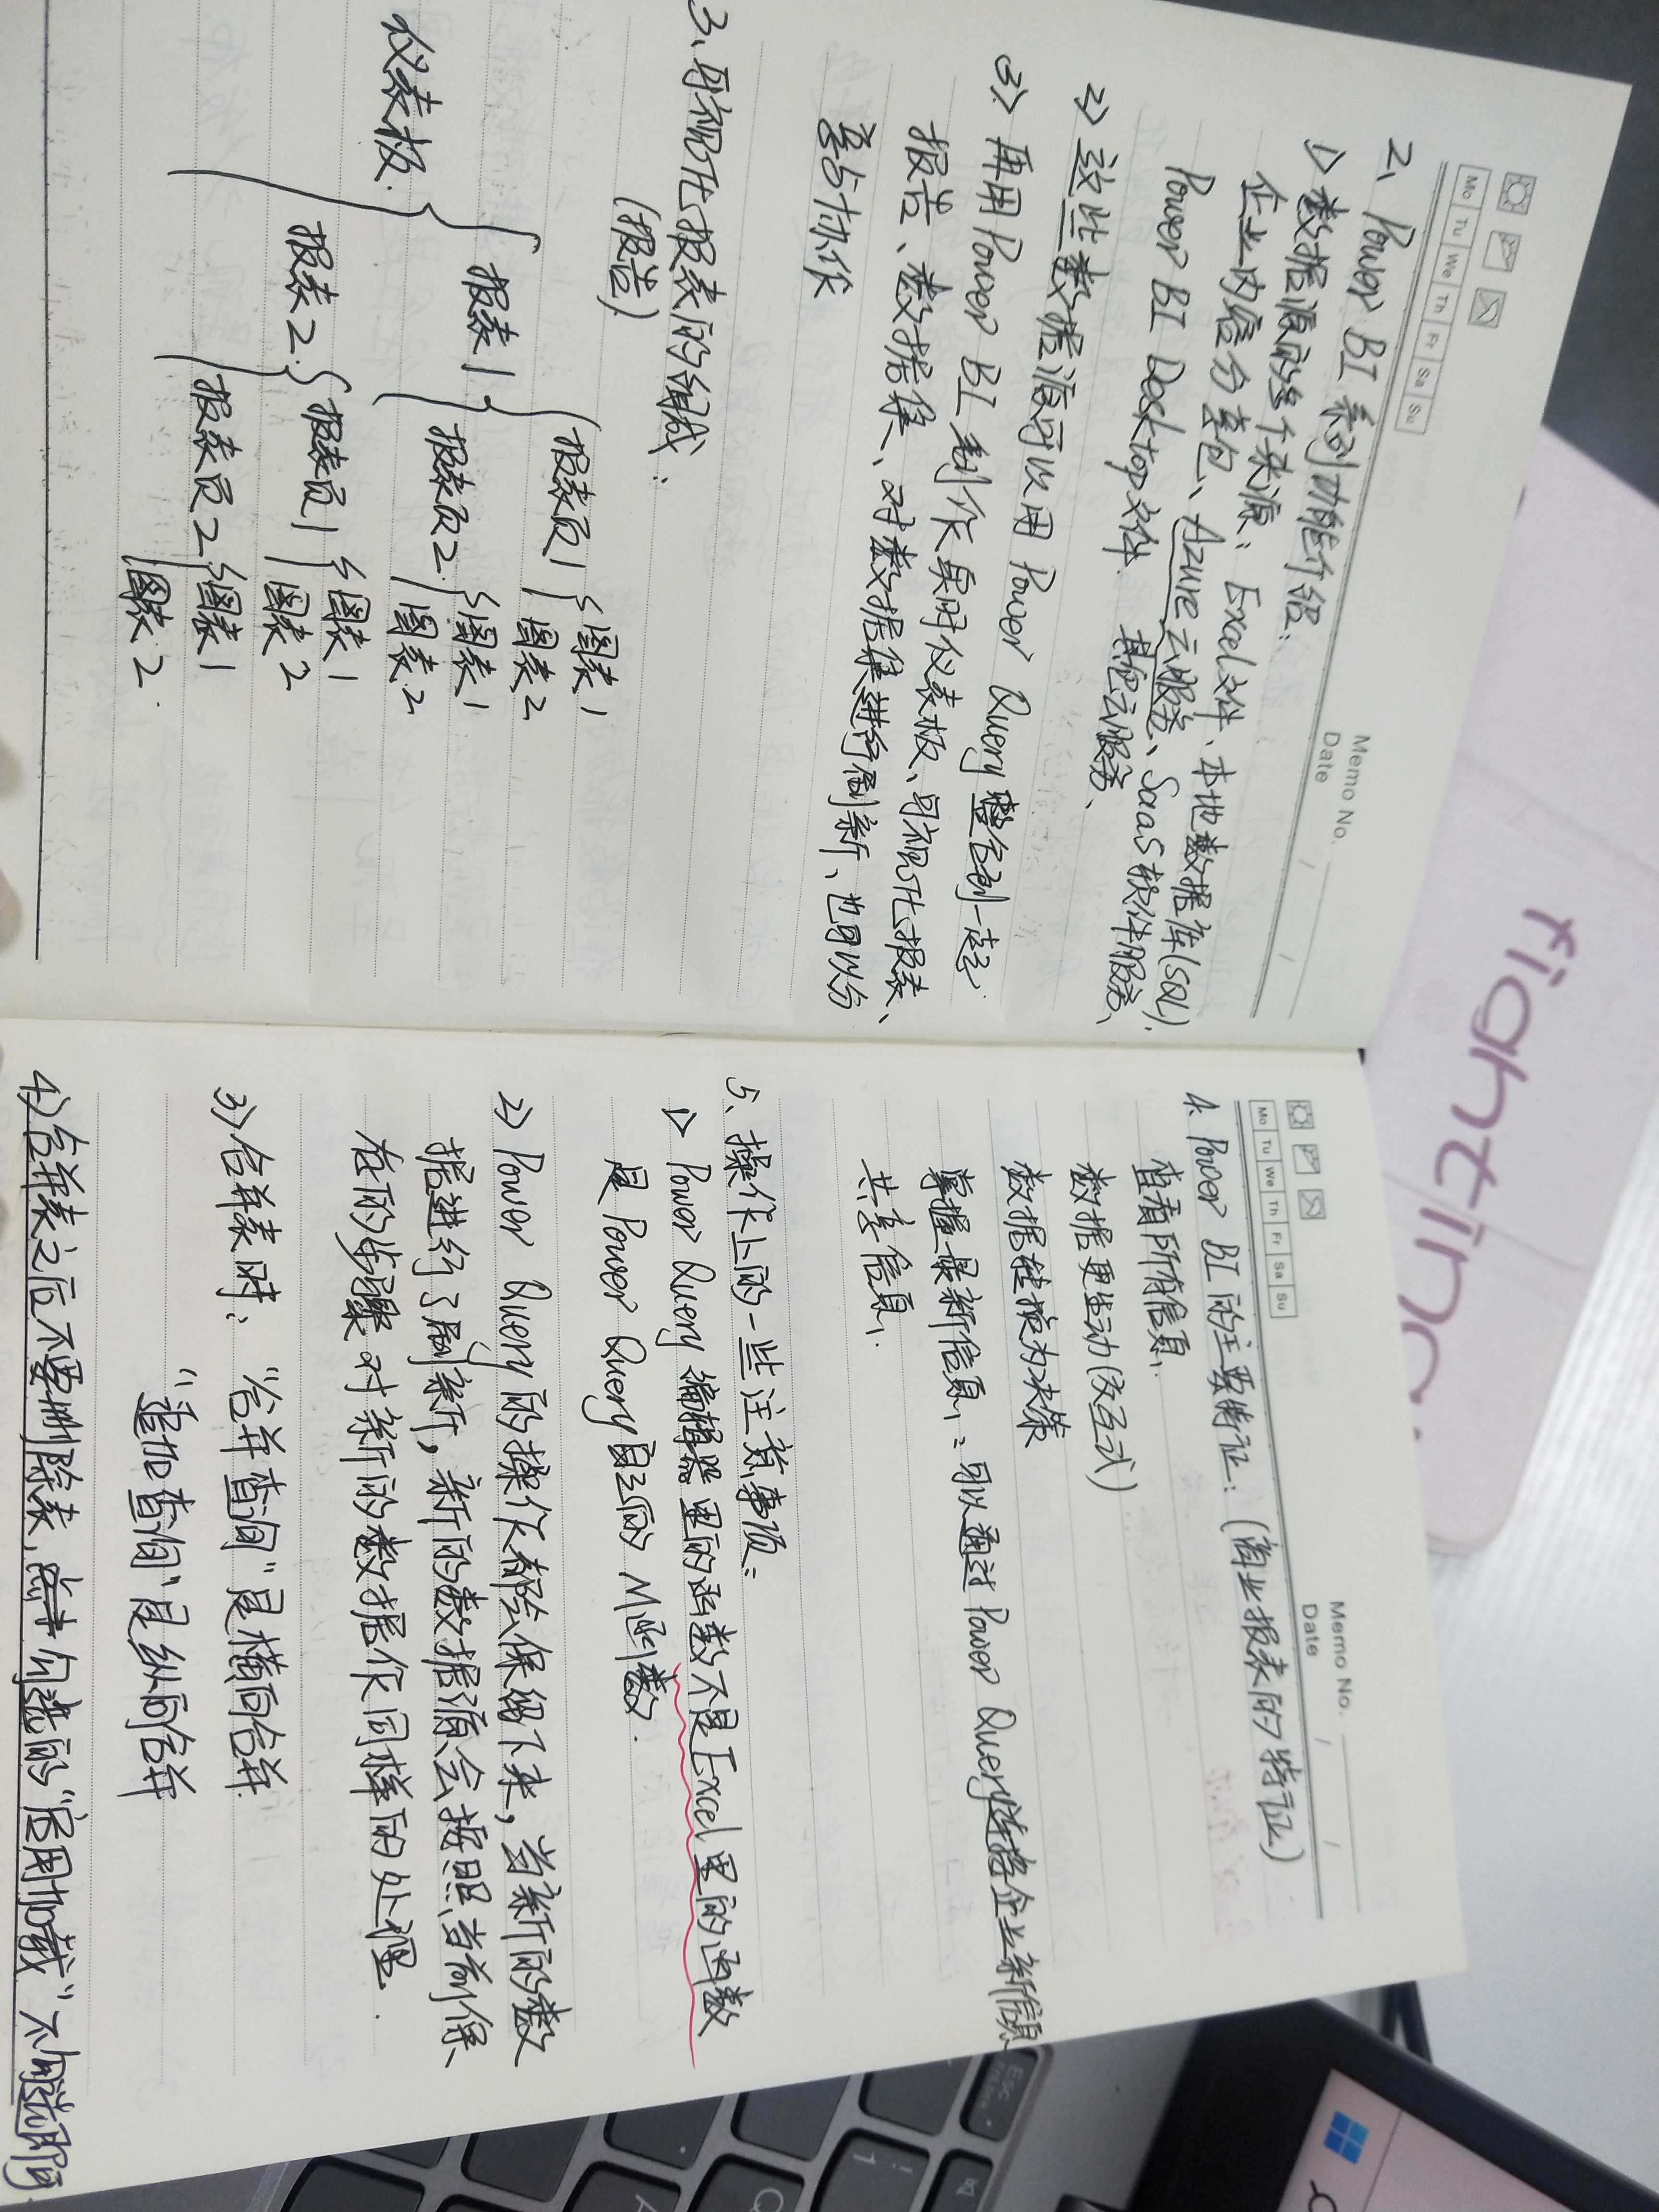 Memo No.
Mo Tu We Th Fr Sa Su
Date / /
2、Power BI 系列功能介绍:
1) 数据源的多个来源: Excel文件、本地数据库(SQL)、
企业内容分类包、Azure云服务、SaaS软件服务、
Power BI Desktop文件、其他云服务、
2) 这些数据源可以用 Power Query 整合到一起
3) 再用 Power BI 制作实时仪表板、可视化报表、
报告、数据集、对数据集进行刷新、也可以分
享与协作
3、可视化报表的组成:
(报告)
仪表板
报表1
报表页1
图表1
图表2
报表页2
图表1
图表2
报表2
报表页1
图表1
图表2
报表页2
图表1
图表2
Memo No.
Mo Tu We Th Fr Sa Su
Date / /
4. Power BI 的主要特证: (商业报表的特证)
查看所有信息、
数据更生动(交互式)
数据转换为决策
掌握最新信息、: 可以通过 Power Query连接企业新信息
共享信息、
5、操作上的一些注意事项:
1) Power Query 编辑器里的函数不是Excel里的函数
是 Power Query自己的 M函数.
2) Power Query 的操作都会保留下来, 当新的数
据进行了刷新, 新的数据源会按照当前保、
在的步骤对新的数据作同样的处理.
3) 合并表时: “合并查询”是横向合并
“追加查询”是纵向合并
4) 合并表之后不要删除表, 点击勾选的“启用加载”不勾选即可
fighting
Esc
FnLock
! 1
Q
A